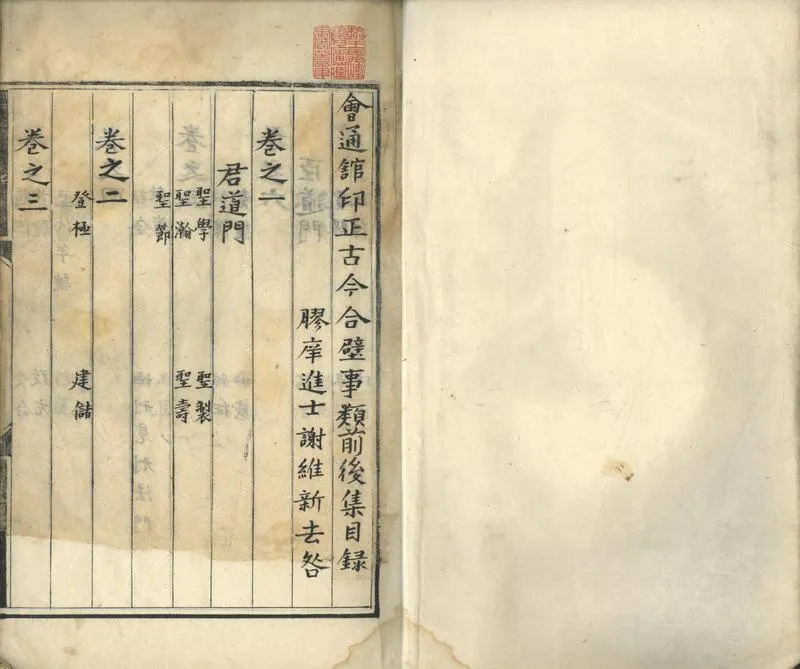 會通館印正古今合璧事類前後集目録
膠庠進士謝維新去咎
卷之一
君道門
聖學 聖製
聖瀚 聖壽
聖節
卷之二
登極 建儲
卷之三